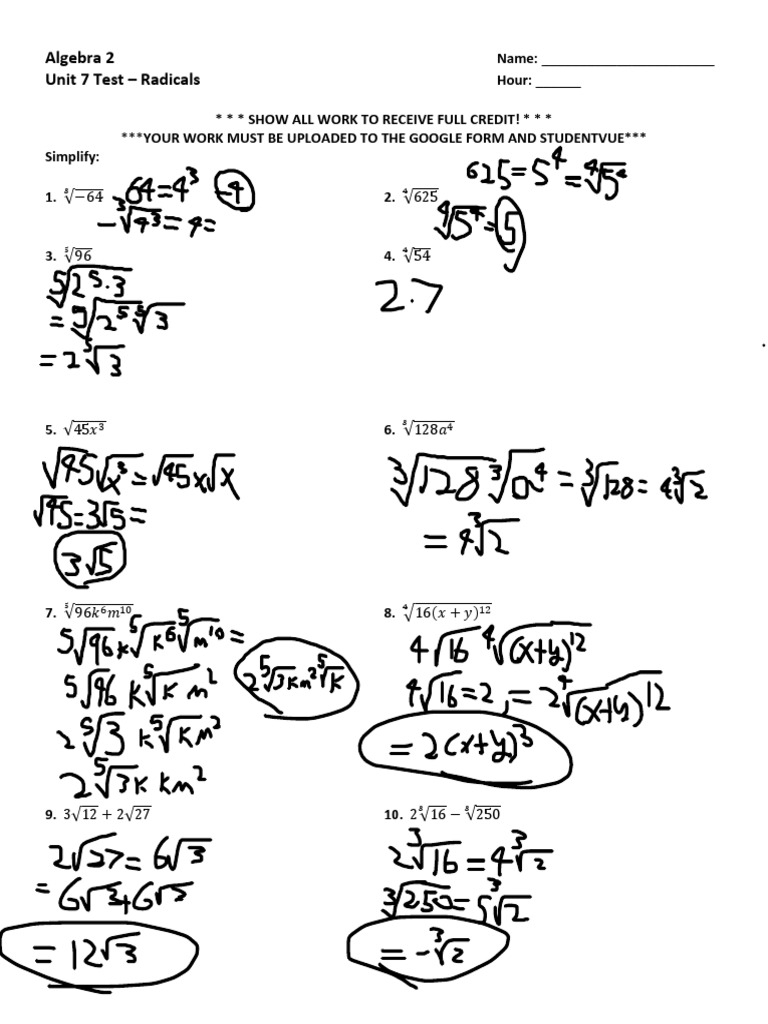 Algebra 2
Name: ________________________
Unit 7 Test – Radicals
Hour: ______
* * * SHOW ALL WORK TO RECEIVE FULL CREDIT! * * *
***YOUR WORK MUST BE UPLOADED TO THE GOOGLE FORM AND STUDENTVUE***
Simplify:
1. ∛−64
64=4³ -4
-∛4³=4=
2. ∜625
625=5⁴=∜5⁴
∜5⁴=5
3. ⁵√96
⁵√2⁵·3
=⁵√2⁵ ⁵√3
=2⁵√3
4. ∜54
2.7
5. √45x³
√45√x³=√45x√x
√45=3√5=
3√5
6. ∛128a⁴
∛128 ∛a⁴=∛128=4∛2
=4∛2
7. ⁵√96k⁶m¹⁰
⁵√96k ⁵√k⁶ ⁵√m¹⁰=
⁵√96 k⁵√k m²
2⁵√3 k⁵√k m²
2⁵√3k km²
2⁵√3km² ⁵√k
8. ∜16(x + y)¹²
4√16 ∜(x+y)¹²
∜16=2, =2∜(x+y)¹²
=2(x+y)³
9. 3√12 + 2√27
2√27=6√3
=6√3+6√3
=12√3
10. 2∛16 − ∛250
2∛16=4∛2
∛250=5∛2
=-∛2